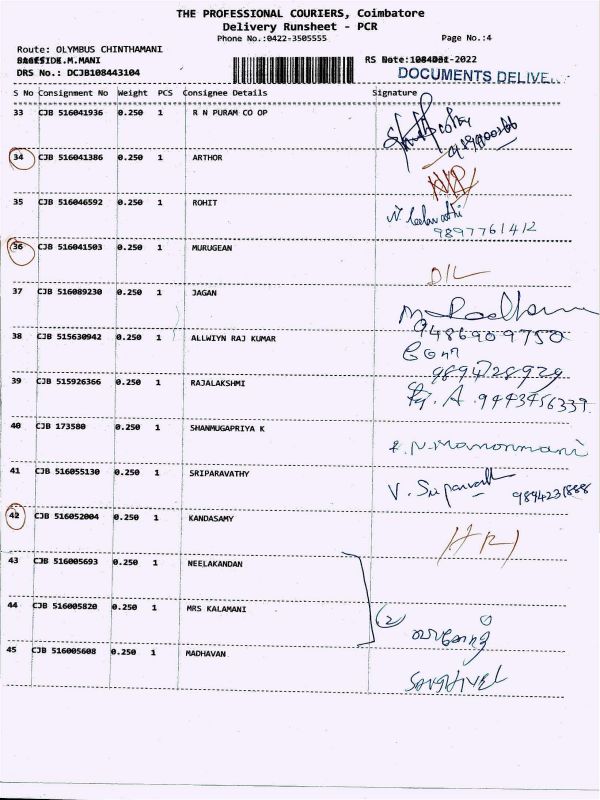 THE PROFESSIONAL COURIERS, Coimbatore
Delivery Runsheet - PCR
Phone No.:0422-3505555 Page No.:4
Route: OLYMBUS CHINTHAMANI
DRS No.: DCJB108443104
DOCUMENTS DELIVE
S No Consignment No Weight PCS Consignee Details Signature
33 CJB 516041936 0.250 1 R N PURAM CO OP
34 CJB 516041386 0.250 1 ARTHOR
35 CJB 516046592 0.250 1 ROHIT N. Leelavathi
9897761412
36 CJB 516041503 0.250 1 MURUGEAN
D/L
37 CJB 516089230 0.250 1 JAGAN
9486909750
38 CJB 515630942 0.250 1 ALLWIYN RAJ KUMAR
9894728929
39 CJB 515926366 0.250 1 RAJALAKSHMI A. 9443456339
40 CJB 173580 0.250 1 SHANMUGAPRIYA K
N. Manonmani
41 CJB 516055130 0.250 1 SRIPARAVATHY
V. 9894231888
42 CJB 516052004 0.250 1 KANDASAMY
43 CJB 516005693 0.250 1 NEELAKANDAN
44 CJB 516005820 0.250 1 MRS KALAMANI (2)
45 CJB 516005608 0.250 1 MADHAVAN